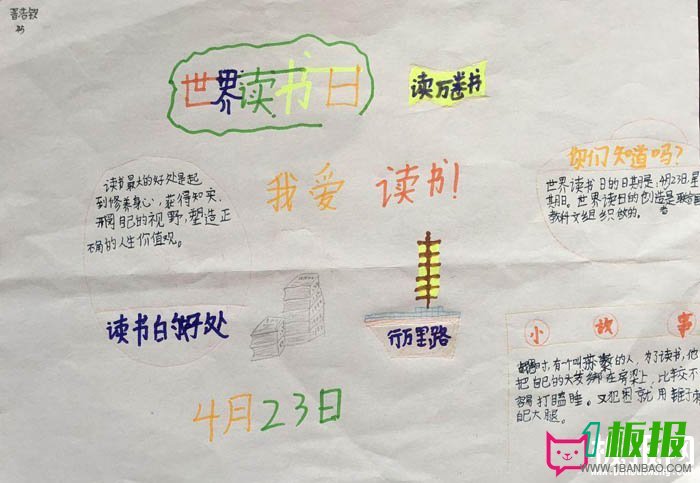 世界读书日
读万卷书
我爱读书!
读书最大的好处是起
到修养身心,获得知实,
开阔自己的视野,塑造正
确的人生价值观。
读书的好处
你们知道吗?
世界读书日的日期是:4月23日,星
期日。世界读书日的创造是联合国
教科文组织做的。
行万里路
小故事
时,有个叫苏秦的人,为了读书,他
把自己的头发绑在房梁上,比较不
容易打瞌睡。又犯困就用锥子刺
自己大腿
4月23日
1板报
WWW.1BANBAO.COM